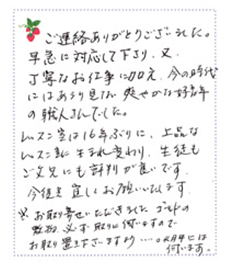 ご連絡ありがとうございました。
早急に対応して下さり、又、
丁寧なお仕事に加え、今の時代
にはあまり見ない爽やかな好青年
の職人さんでした。
レッスン室は16年ぶりに、上品な
レッスン室に生まれ変わり、生徒も
ご父兄にも評判が良いです。
今後も宜しくお願いいたします。
※お取り寄せいただきました ゴールドの
必ず取りに伺いますので
お取り置き下さいませ
伺います。